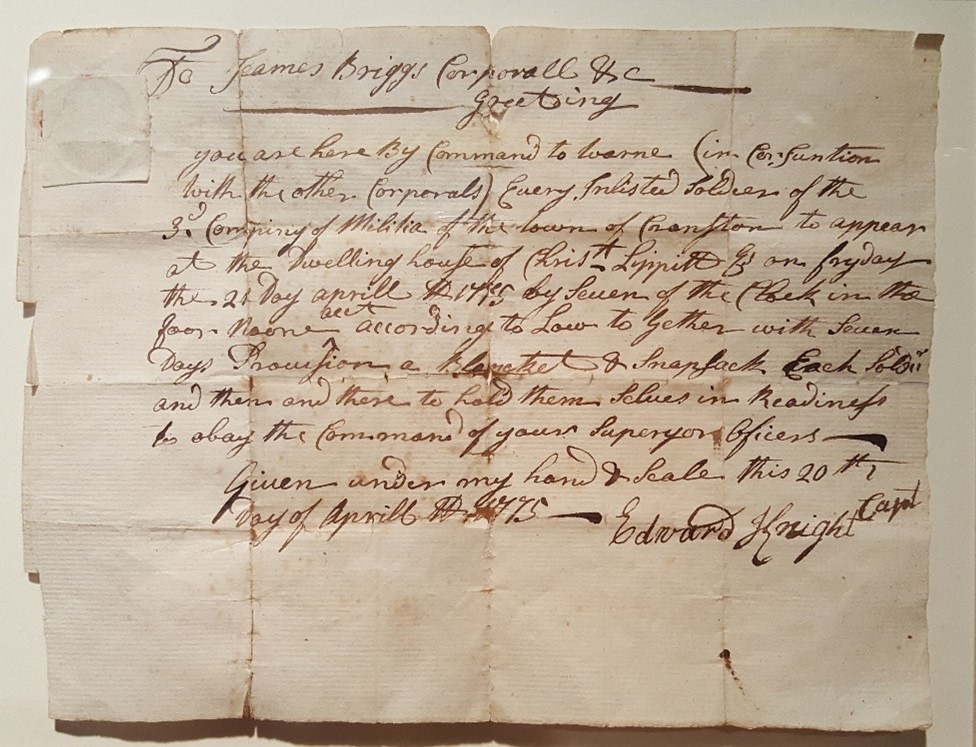 To James Briggs Corporall &c
Greeting
you are here By Command to warne (in Conjuntion
with the other Corporals) Every Inlisted Soldier of the
3d Compiny of Militia of the town of Cranston to appear
at the Dwelling house of Christr Lippitt on fryday
the 21 Day aprill AD 1775 by Seven of the Clock in the
foor Noone acct according to Law to Gether with Seven
Days Provision a Blancket & Snapsack Each
and then and there to hold them Selves in Readiness
to obay the Command of your Superyor Officers
Given under my hand & Seale this 20th
Day of Aprill AD 1775
Edward Knight Capt